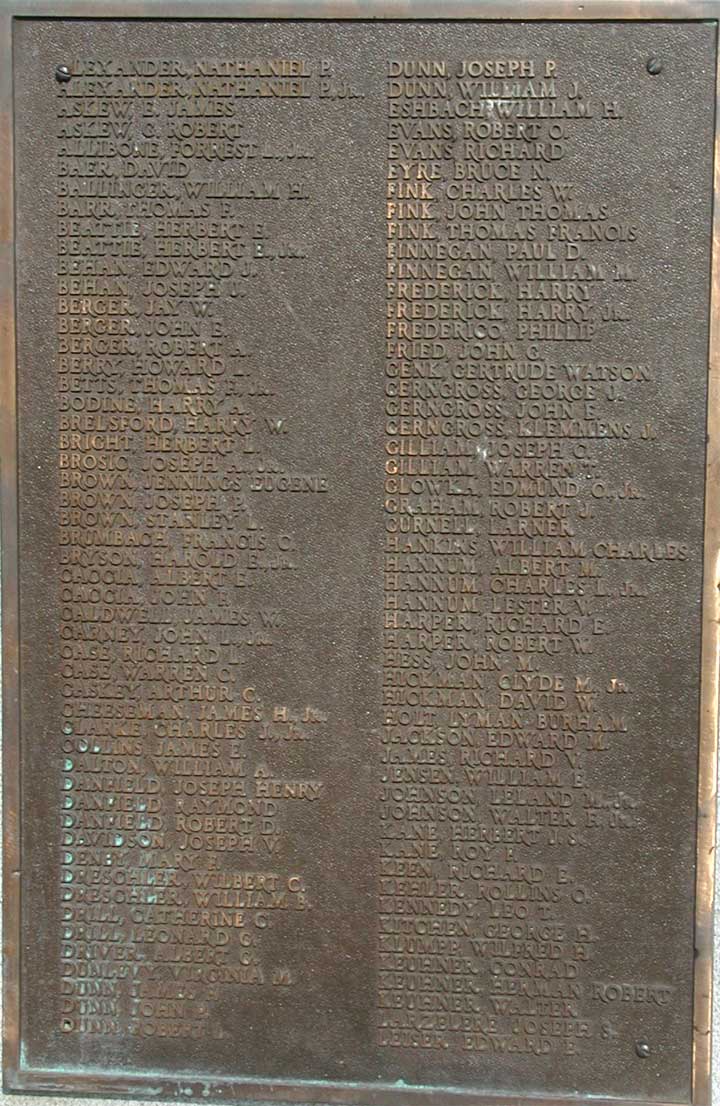 ALEXANDER, NATHANIEL P.
ALEXANDER, NATHANIEL P., JR.
ASKEW, E. JAMES
ASKEW, C. ROBERT
ALLIBONE, FORREST L., JR.
BAER, DAVID
BALLINGER, WILLIAM H.
BARR, THOMAS F.
BEATTIE, HERBERT E.
BEATTIE, HERBERT E., JR.
BEHAN, EDWARD J.
BEHAN, JOSEPH J.
BERGER, JAY W.
BERGER, JOHN E.
BERGER, ROBERT A.
BERRY, HOWARD L.
BETTS, THOMAS F., JR.
BODINE, HARRY A.
BRELSFORD, HARRY W.
BRIGHT, HERBERT L.
BROSIC, JOSEPH A., JR.
BROWN, JENNINGS EUGENE
BROWN, JOSEPH P.
BROWN, STANLEY L.
BRUMBACH, FRANCIS C.
BRYSON, HAROLD E., JR.
CACCIA, ALBERT E.
CACCIA, JOHN F.
CALDWELL, JAMES W.
CARNEY, JOHN L., JR.
CASE, RICHARD L.
CASE, WARREN C.
CASKEY, ARTHUR C.
CHEESEMAN, JAMES H., JR.
CLARKE, CHARLES J., JR.
COLLINS, JAMES E.
DALTON, WILLIAM A.
DANFIELD, JOSEPH HENRY
DANFIELD, RAYMOND
DANFIELD, ROBERT D.
DAVIDSON, JOSEPH V.
DENBY, MARY F.
DRESCHLER, WILBERT C.
DRESCHLER, WILLIAM B.
DRILL, CATHERINE C.
DRILL, LEONARD C.
DRIVER, ALBERT G.
DUNLEVY, VIRGINIA M.
DUNN, JAMES H.
DUNN, JOHN P.
DUNN, ROBERT
DUNN, JOSEPH P.
DUNN, WILLIAM J.
ESHBACH, WILLIAM H.
EVANS, ROBERT O.
EVANS, RICHARD
EYRE, BRUCE N.
FINK, CHARLES W.
FINK, JOHN THOMAS
FINK, THOMAS FRANCIS
FINNEGAN, PAUL D.
FINNEGAN, WILLIAM M.
FREDERICK, HARRY
FREDERICK, HARRY, JR.
FREDERICO, PHILLIP
FRIED, JOHN G.
GENK, GERTRUDE WATSON
GERNGROSS, GEORGE J.
GERNGROSS, JOHN E.
GERNGROSS, KLEMMENS J.
GILLIAM, JOSEPH C.
GILLIAM, WARREN T.
GLOWKA, EDMUND O., JR.
GRAHAM, ROBERT J.
GURNELL, LARNER
HANKINS, WILLIAM CHARLES
HANNUM, ALBERT M.
HANNUM, CHARLES L., JR.
HANNUM, LESTER V.
HARPER, RICHARD E.
HARPER, ROBERT W.
HESS, JOHN M.
HICKMAN, CLYDE M., JR.
HICKMAN, DAVID W.
HOLT, LYMAN BURHAM
JACKSON, EDWARD M.
JAMES, RICHARD V.
JENSEN, WILLIAM E.
JOHNSON, LELAND M., JR.
JOHNSON, WALTER F., JR.
KANE, HERBERT J. S.
KANE, ROY F.
KEEN, RICHARD E.
KEHLER, ROLLINS O.
KENNEDY, LEO T.
KITCHEN, GEORGE H.
KLUMPP, WILFRED H.
KEUHNER, CONRAD
KEUHNER, HERMAN ROBERT
KEUHNER, WALTER
LARZELERE, JOSEPH S.
LEISER, EDWARD E.